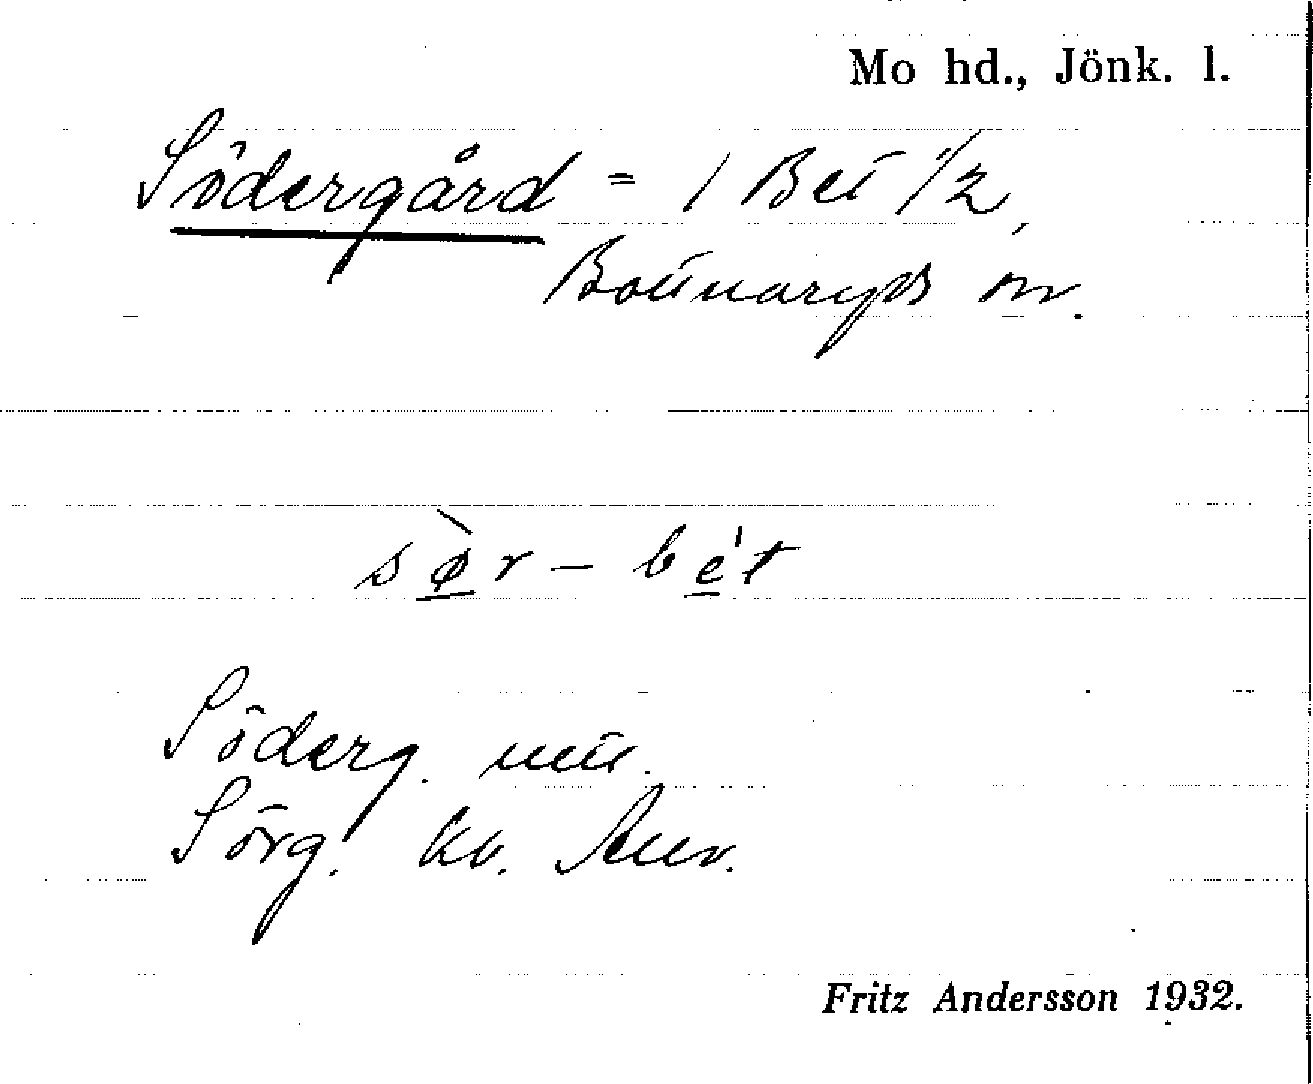 Mo hd., Jönk. l.
Södergård = 1 Bet 1/2,
Bottnaryds sn.
sø̀r – bét
Söderg.
Sörg. kv.
Fritz Andersson 1932.